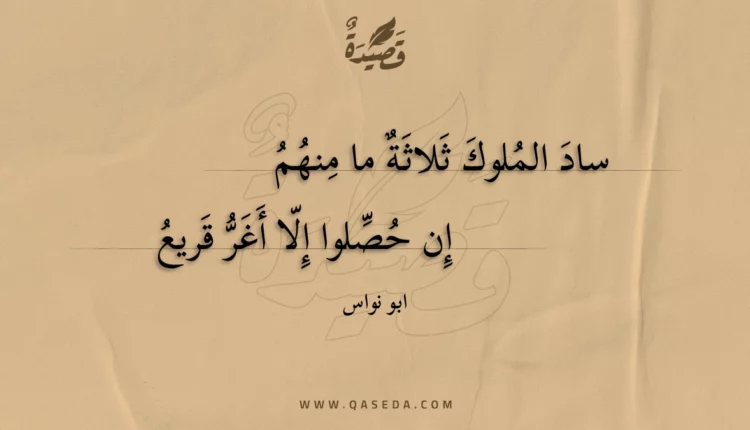 قَصِيْدَةٌ
سادَ المُلوكَ ثَلاثَةٌ ما مِنهُمُ
إِن حُصِّلوا إِلّا أَغَرُّ قَريعُ
ابو نواس
WWW.QASEDA.COM